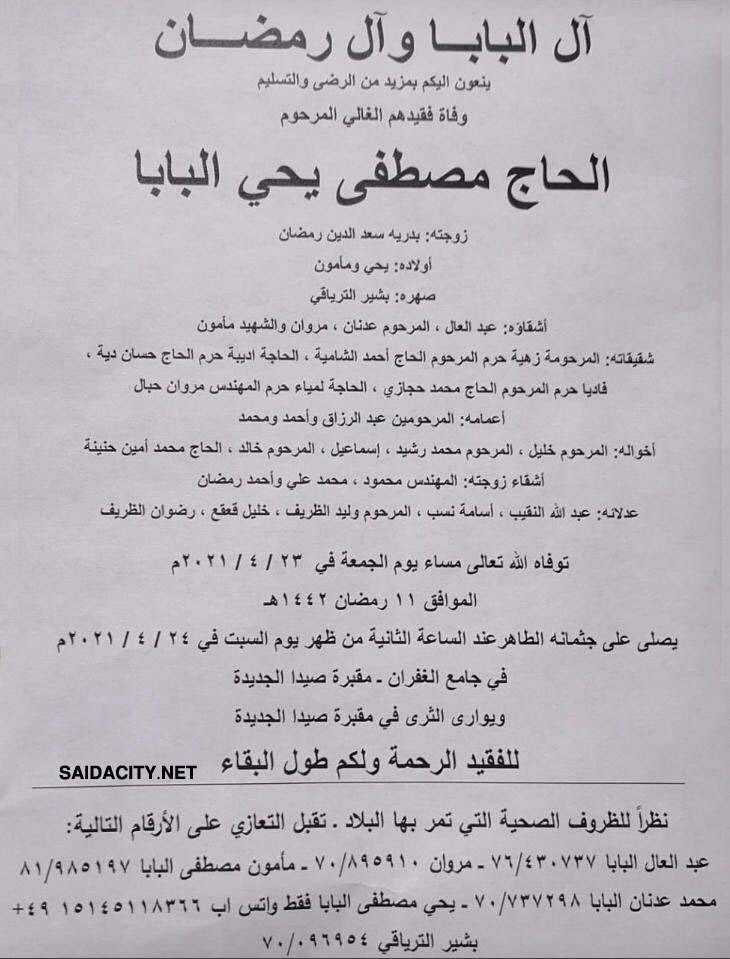 آل البابا وآل رمضان
ينعون اليكم بمزيد من الرضى والتسليم
وفاة فقيدهم الغالي المرحوم
الحاج مصطفى يحي البابا
زوجته: بدريه سعد الدين رمضان
أولاده: يحي ومأمون
صهره: بشير الترياقي
أشقاؤه: عبد العال ، المرحوم عدنان ، مروان والشهيد مأمون
شقيقاته: المرحومة زهية حرم المرحوم الحاج أحمد الشامية ، الحاجة اديبة حرم الحاج حسان دية ،
فاديا حرم المرحوم الحاج محمد حجازي ، الحاجة لمياء حرم المهندس مروان حبال
أعمامه: المرحومين عبد الرزاق وأحمد ومحمد
أخواله: المرحوم خليل ، المرحوم محمد رشيد ، إسماعيل ، المرحوم خالد ، الحاج محمد أمين حنينة
أشقاء زوجته: المهندس محمود ، محمد علي وأحمد رمضان
عدلائه: عبد الله النقيب ، أسامة نسب ، المرحوم وليد الظريف ، خليل قعقع ، رضوان الظريف
توفاه الله تعالى مساء يوم الجمعة في ٢٣ / ٤ / ٢٠٢١م
الموافق ١١ رمضان ١٤٤٢هـ
يصلى على جثمانه الطاهر عند الساعة الثانية من ظهر يوم السبت في ٢٤ / ٤ / ٢٠٢١م
في جامع الغفران ـ مقبرة صيدا الجديدة
ويوارى الثرى في مقبرة صيدا الجديدة
للفقيد الرحمة ولكم طول البقاء
SAIDACITY.NET
نظراً للظروف الصحية التي تمر بها البلاد . تقبل التعازي على الأرقام التالية:
عبد العال البابا ٧٦/٤٣٠٧٣٧ ـ مروان ٧٠/٨٩٥٩١٠ ـ مأمون مصطفى البابا ٨١/٩٨٥١٩٧
محمد عدنان البابا ٧٠/٧٣٧٢٩٨ ـ يحي مصطفى البابا فقط واتس اب ١٥١٤٥١١٨٣٦٦ ٤٩+
بشير الترياقي ٧٠/٠٩٦٩٥٤